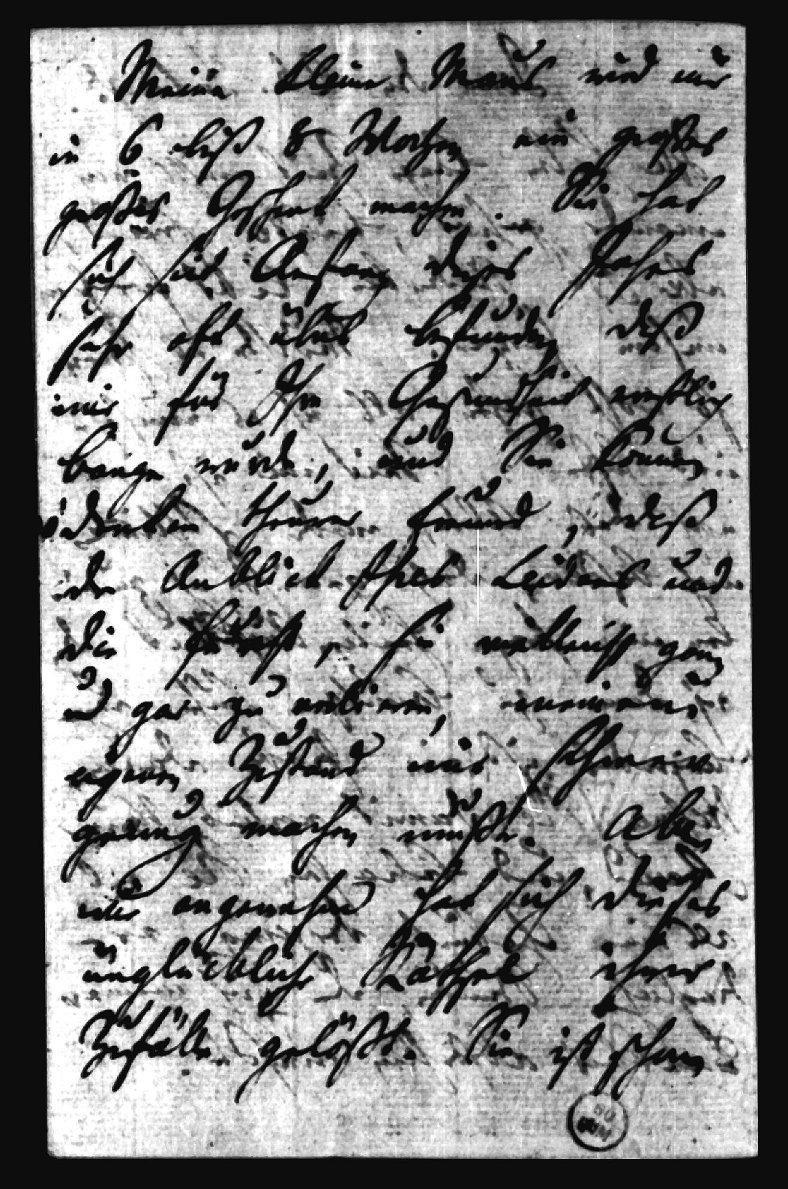 Meine kleine Maus wird mir
in 6 biß 8 Wochen ein großes
großes Geschenk machen. Sie hat
sich seit Anfang dieses Jahres
sehr oft übel befunden, daß
mir für Ihre Gesundheit ernstlich
bange wurde, und Sie können
denken theurer Freund, daß
der Anblick Ihres Leidens und
die Furcht, sie vielleicht ganz
und gar zu verlieren, meinen
eignen Zustand mir schwer
genug machen mußte. Aber
wie angenehm hat sich dieses
unglückliche Räthsel ihrer
Zufälle gelößt. Sie ist schon